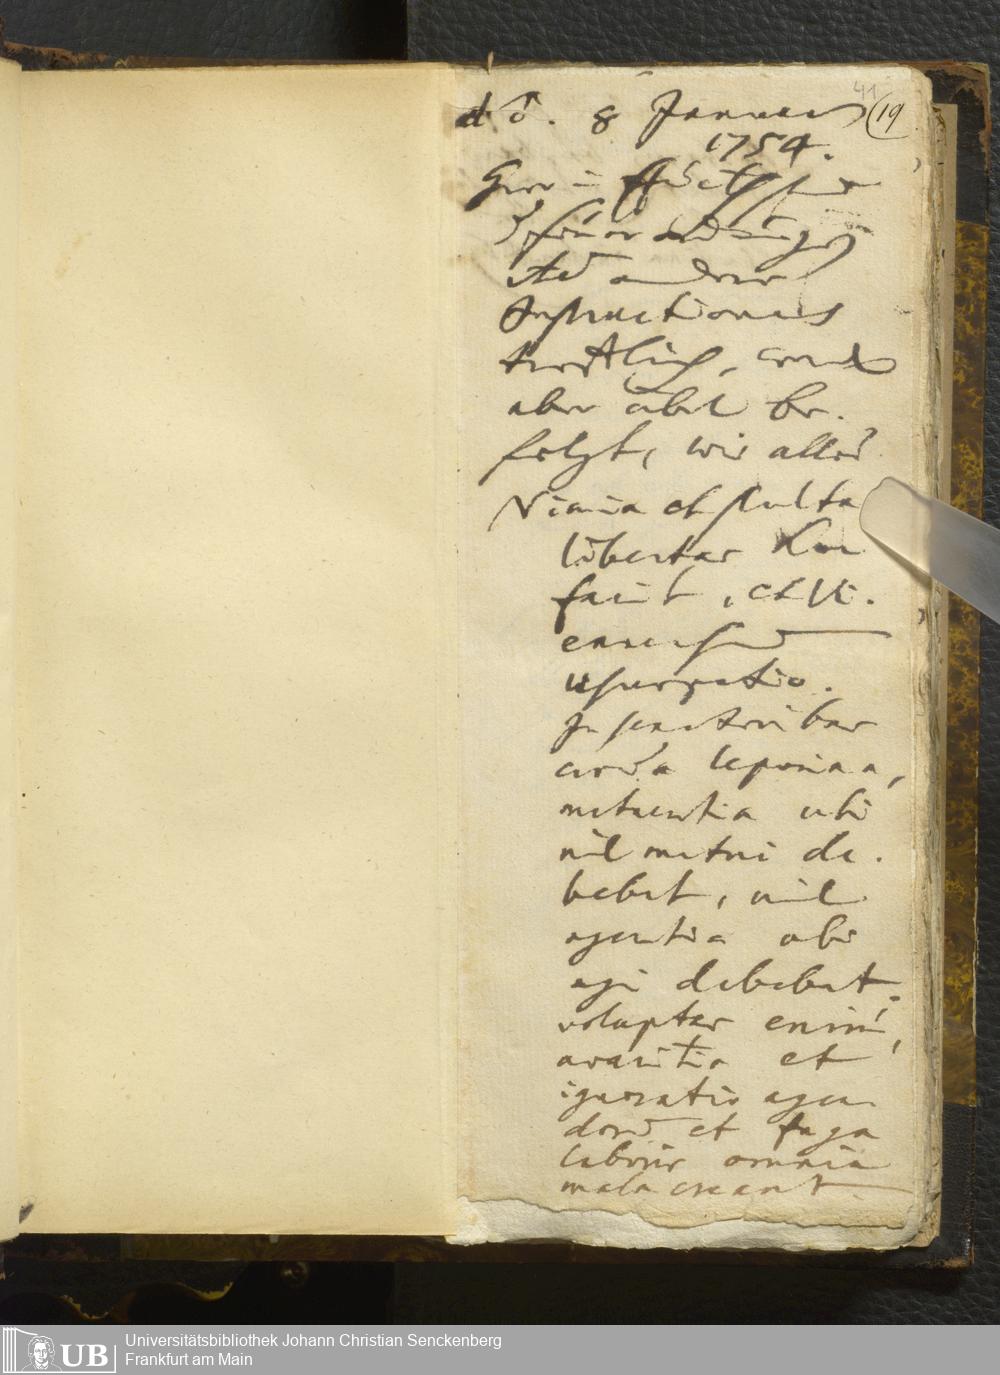 41
(19
d. 8 Januar
1754.
und andere
Instructiones
trefflich, werden
aber übel be-
folgt, wie alles
Nimia et stulta
libertas
facit, et Vi-
ennensium
usurpatio.
In senatoribus
corda leporina,
metuentia ubi
nil metui de-
bebat, nil
agentia ubi
agi debebat.
voluptas enim,
avaritia et
ignoratio agen-
dorum et fuga
laboris omnia
mala creant.
UB
Universitätsbibliothek Johann Christian Senckenberg
Frankfurt am Main